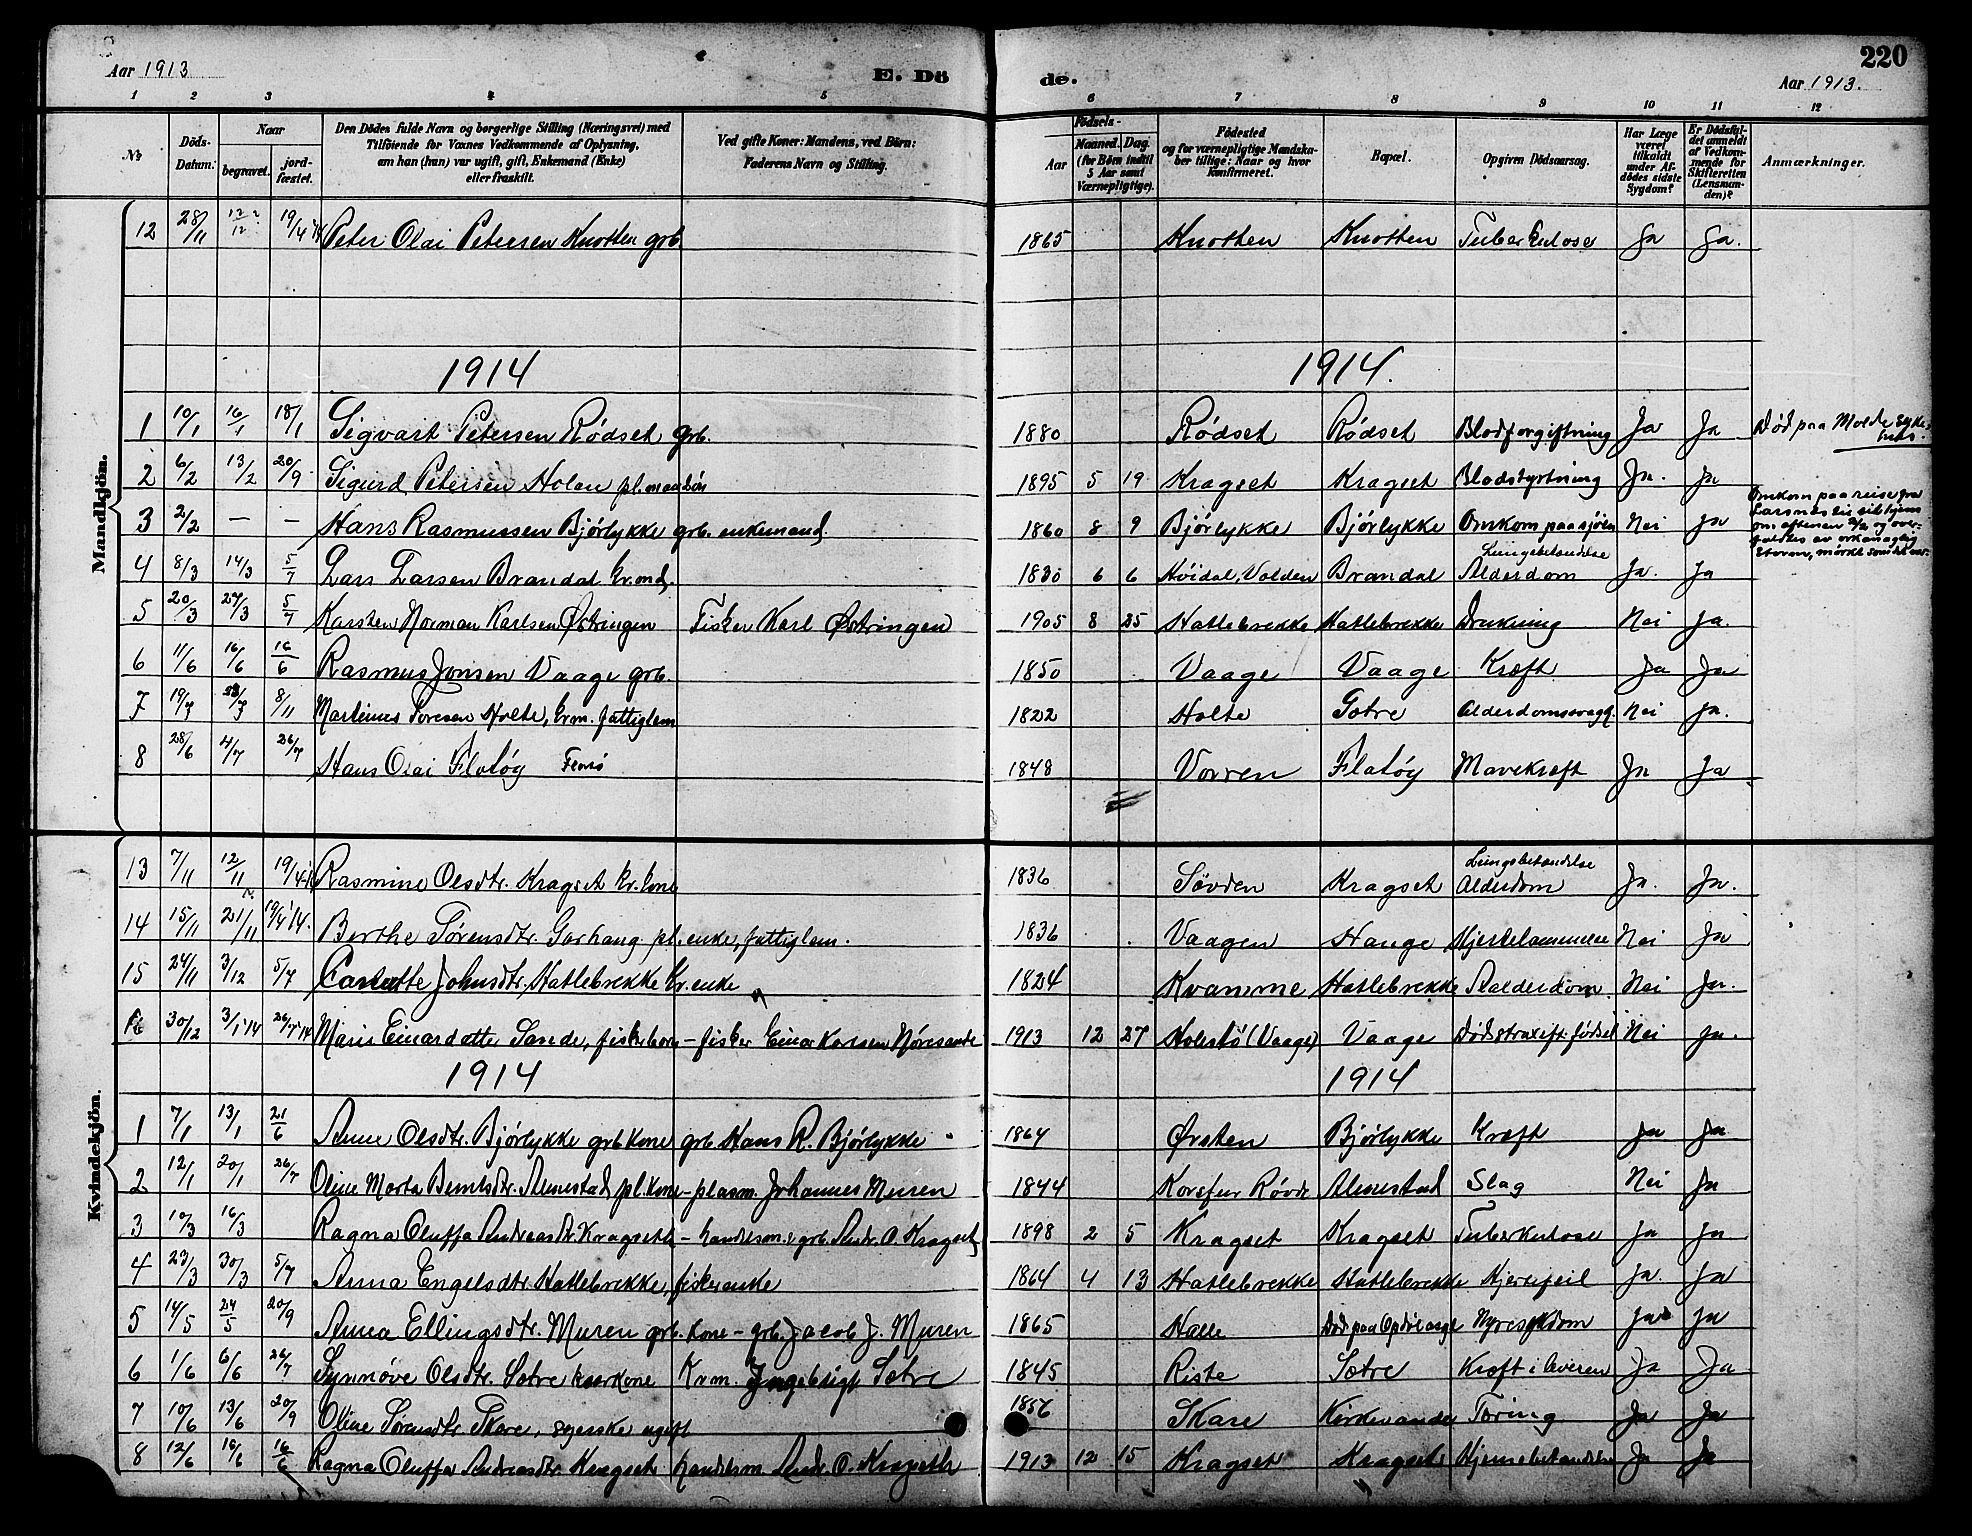 220
Aar 1913
E. Dö de.
Aar 1913.
1 2 3 4 5 6 7 8 9 10 11 12
№
Döds-Datum.
Naar begravet. jordfæstet.
Den Dödes fulde Navn og borgerlige Stilling (Næringsvei) med Tilföiende for Voxnes Vedkommende af Oplysning, om han (hun) var ugift, gift, Enkemand (Enke) eller fraskilt.
Ved gifte Koner: Mandens, ved Börn: Faderens Navn og Stilling.
Födsels-
Aar
Maaned. Dag. (for Börn indtil 5 Aar samt Værnepligtige).
Födested og for værnepligtige Mandskaber tillige: Naar og hvor konfirmeret.
Bopæl.
Opgiven Dödsaarsag.
Har Læge været tilkaldt under Afdödes sidste Sygdom?
Er Dödsfaldet anmeldt af Vedkommende for Skifteretten (Lensmanden)?
Anmærkninger.
Mandkjön.
12 28/11 19/4 '14 Peter Olai Petersen Knotten grb. 1865 Knotten Knotten Tuberkulose Ja Ja.
1914 1914.
1 10/1 16/1 18/1 Sigvart Petersen Rødset grb. 1880 Rødset Rødset Blodforgiftning Ja Ja Død paa Molde sykehus.
2 6/2 13/2 20/9 Sigurd Petersen Holen pl.mandsøn 1895 5 19 Kragset Kragset Blodstyrtning Ja. Ja
3 2/2 — — Hans Rasmussen Bjørlykke grb. enkemand. 1860 8 9 Bjørlykke Bjørlykke Omkom paa sjøen Nei Ja Omkom paa reise fra Larsnes til sit hjem om aftenen 2/2 og overfaldtes av orkanaglig storm, mørkt som det var.
4 8/3 14/3 5/7 Lars Larsen Brandal 1830 6 6 Høidal, Volden Brandal Lungebetændelse Alderdom Ja. Ja
5 20/3 27/3 5/7 Karsten Norman Karlsen Østringen Fisker Karl Østringen 1905 8 25 Hatlebrekke Hatlebrekke Drukning Nei Ja.
6 11/6 16/6 16/6 Rasmus Jonsen Vaage grb. 1850 Vaage Vaage Kræft Ja Ja
7 8/11 Martinus Toresen Holte, krm. fattiglem 1822 Holte Sætre Alderdomssvagh. Nei Ja.
8 28/6 4/7 26/7 Hans Olai Flatøy 1848 Vorren Flatøy Mavekræft Ja Ja
Kvindekjön.
13 7/11 12/11 19/4-14 Rasmine Olsdtr. Kragset kr. kone 1836 Søvden Kragset Lungebetændelse Alderdom Ja. Ja.
14 15/11 21/11 19/4 '14. Berthe Sørensdtr. Garhaug pl. enke, fattiglem. 1836 Vaagen Hauge Hjertelammelse Nei Ja
15 24/11 3/12 5/7 Johnsdtr. Hatlebrekke kr. enke 1824 Kvamme Hatlebrekke Aalderdom Nei Ja.
16 30/12 3/1 '14 26/7 '14 Maris Einardotter Sande, fiskebarn – fisker Einar Karlsen Nøresande 1913 12 27 Holestø (Vaage) Vaage Død straxeft. fødsel Nei Ja.
1914 1914
1 7/1 13/1 21/6 Anne Olsdtr. Bjørlykke grb kone grb. Hans R. Bjørlykke 1864 Ørsten Bjørlykke Kræft Ja Ja
2 12/1 20/1 26/7 Oline Marta Berntsdtr. Almestad pl. kone – plasm. Johannes Muren 1844 Korsfur Røvde Almestad Slag Nei Ja
3 10/3 16/3 Ragna Oluffa Andreasdtr. Kragseth – handelsm. & grb. Andr. O. Kragset 1898 2 5 Kragset Kragset Tuberkulose Ja Ja
4 23/3 30/3 5/7 Anna Engelsdtr. Hatlebrekke, fiskerenke 1864 4 13 Hatlebrekke Hatlebrekke Hjertefeil Ja. Ja
5 14/5 24/5 20/9 Anna Ellingsdtr. Muren grb. kone – grb. Jacob J. Muren 1865 Halle Død paa Opdølasyl Nyresykdom Ja Ja
6 1/6 6/6 26/7 Synnøve Olsdtr. Sætre kaarkone Krm. Ingebrigt Sætre 1845 Riste Sætre Kræft i leveren Ja Ja
7 10/6 13/6 20/9 Oline Sørensdtr. Skare, syerske ugift 1856 Skare Tæring Ja Ja
8 12/6 16/6 16/6 Ragna Oluffa Andreasdtr. Kragset handelsm. Andr. O. Kragseth 1913 12 15 Kragset Kragset Hjernebetændelse Ja Ja